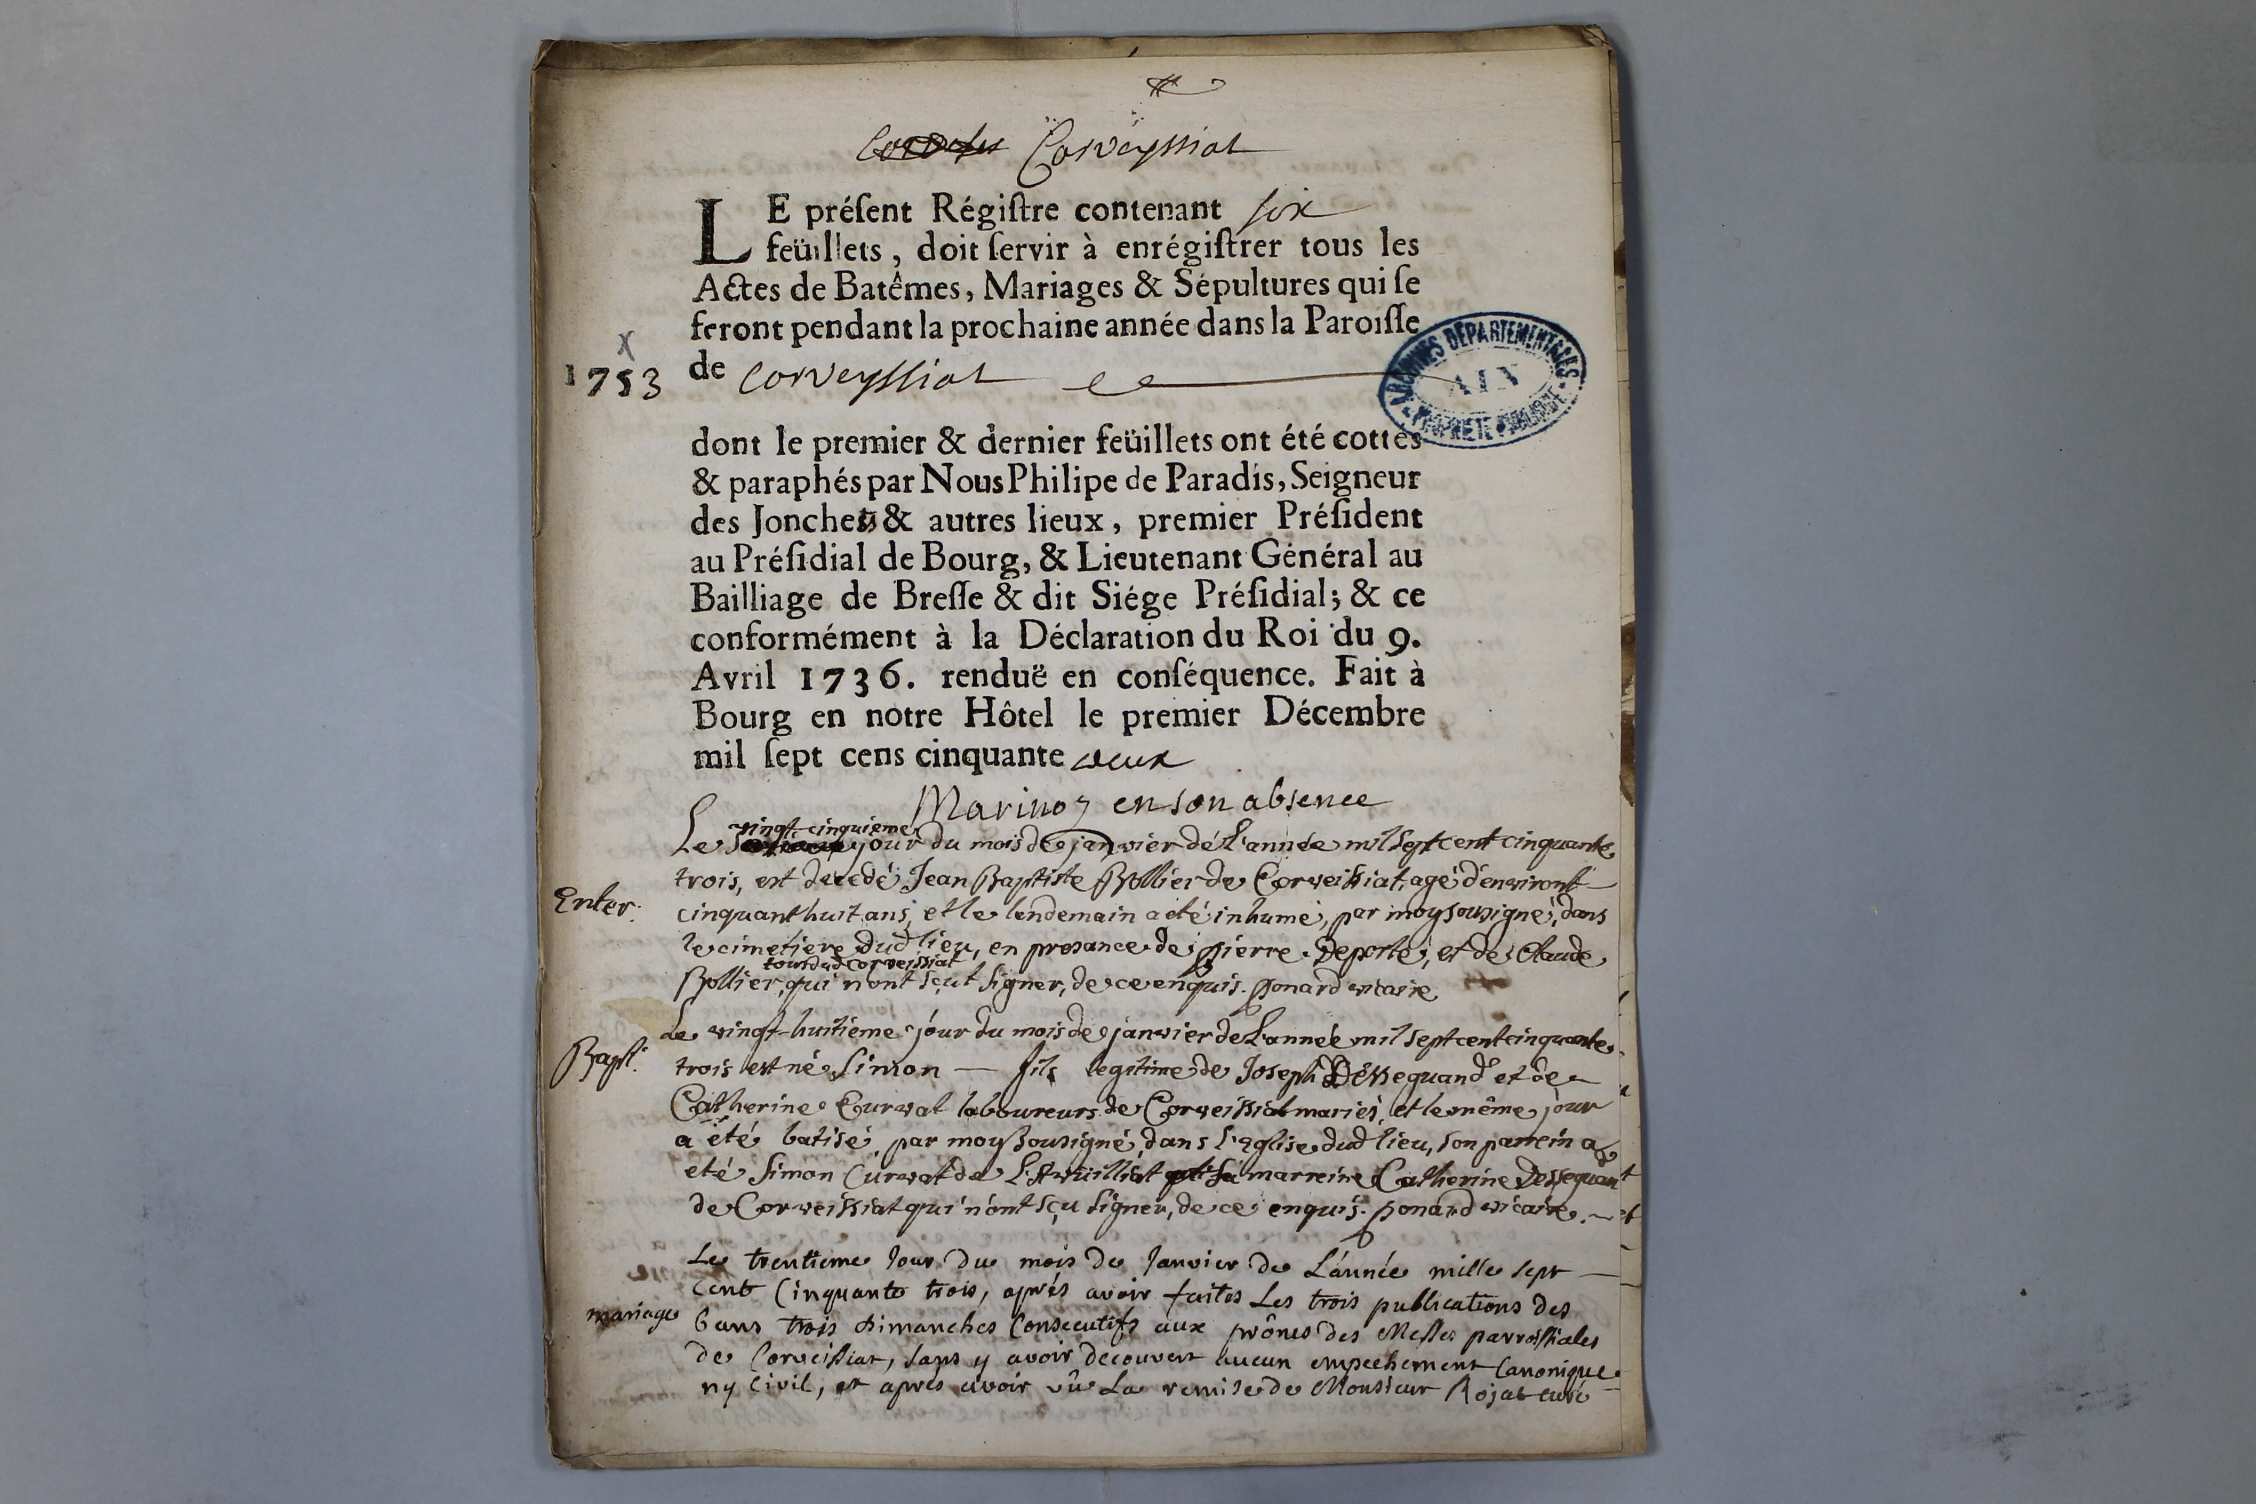 Corveyssiat
LE préſent Régiſtre contenant six
feüillets, doit ſervir à enrégiſtrer tous les
Actes de Batêmes, Mariages & Sépultures qui ſe
feront pendant la prochaine année dans la Paroiſſe
1753
de Corveyssiat
ARCHIVES DÉPARTEMENTALES
AIN
PROPRIÉTÉ PUBLIQUE
dont le premier & dernier feüillets ont été cottés
& paraphés par Nous Philipe de Paradis, Seigneur
des Jonches & autres lieux, premier Préſident
au Préſidial de Bourg, & Lieutenant Général au
Bailliage de Breſſe & dit Siége Préſidial; & ce
conformément à la Déclaration du Roi du 9.
Avril 1736. renduë en conſéquence. Fait à
Bourg en notre Hôtel le premier Décembre
mil ſept cens cinquante deux
en son absence
vingt-cinquieme
Le jour du mois de janvier de L'année mil sept cent cinquante
trois, est decedé Jean Baptiste Bollier de Corveissiat, agé d'environt
Enter.
cinquant huit ans, et le lendemain a été inhumé, par moy sousigné, dans
le cimetiere dud lieu, en presance de pierre Deporte, et de Claude
tous dud Corveissiat
Bollier, qui n'ont sçut signer, de ce enquis. ponard vicaire
Le vingt-huitieme jour du mois de janvier de L'année mil sept cent cinquante
Bapt.
trois est né Simon — fils legitime de Joseph Dessequand et de
Catherine Curvat laboureurs de Corveissiat mariés, et le même jour
a été batisé, par moy sousigné, dans l'eglise dud lieu, son parrein a
eté Simon Curvat de L'Avuilliat sa marreine Catherine Dessequant
de Corveissiat qui n'ont sçu signer, de ce enquis. ponard vicaire.
Le trentieme Jour du mois de Janvier de L'année mille sept
Cent Cinquante trois, aprés avoir faites Les trois publications des
mariage
bans trois dimanches Consecutifs aux prônes des Messes parroissiales
de Corveissiat, sans y avoir decouvert aucun empechement Canonique
ny Civil, et apres avoir vû La remise de Monsieur Rojat curé